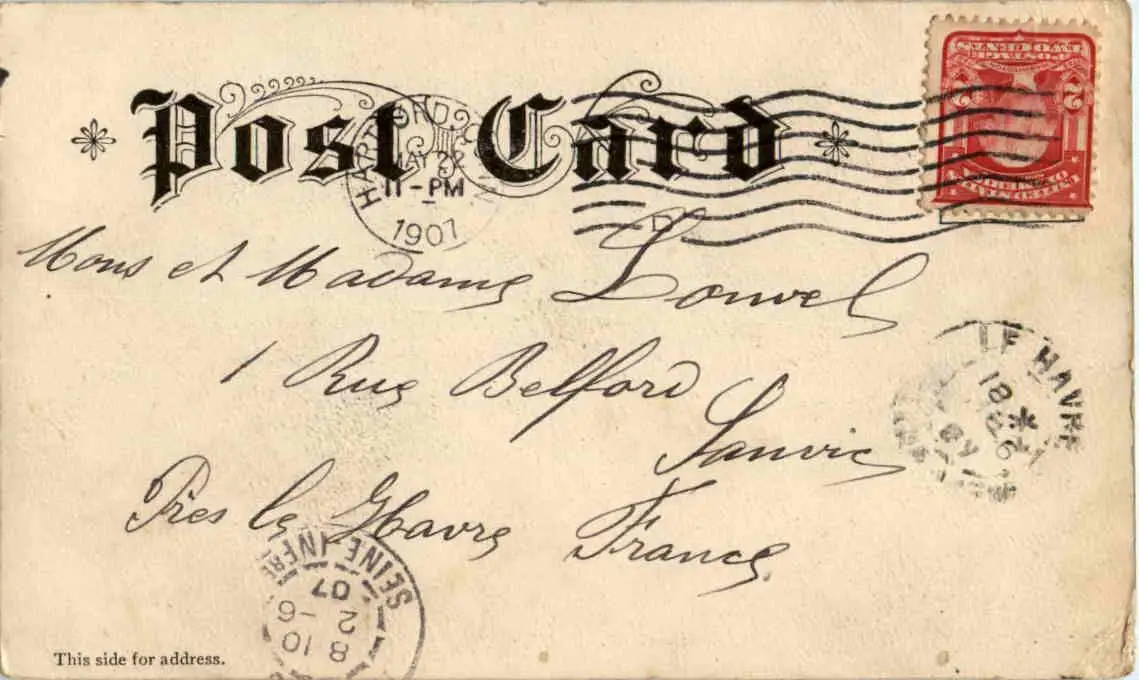 Post Card
HARTFORD, CONN.
MAY 22
11-PM
1907
D
Mons et Madame Louvel
1 Rue Belford
Sanvic
Près le Havre France
LE HAVRE
18
SEINE INFRE
8 10
2 -6
07
This side for address.
2 2